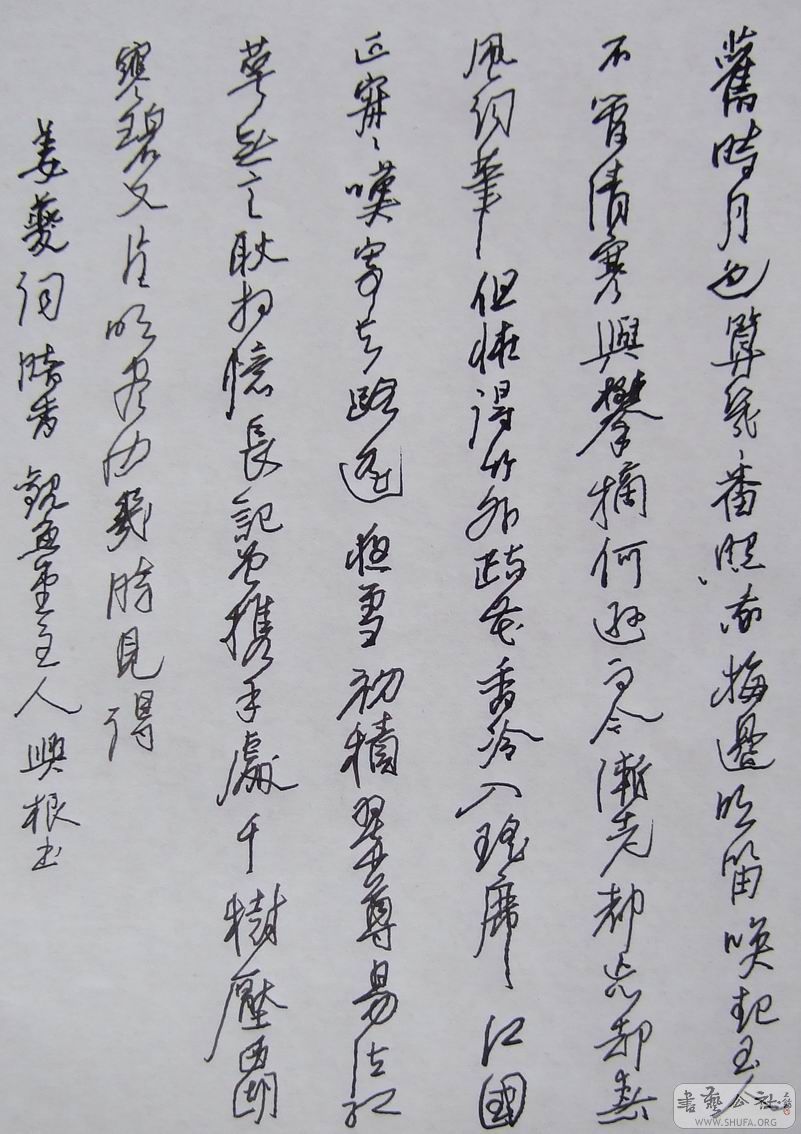 舊時月色算幾番照我梅邊吹笛喚起玉人
不管清寒與攀摘何遜而今漸老都忘却春
風詞筆但怪得竹外疏花香冷入瑤席江國
正寂〻嘆寄与路遥夜雪初積翠尊易泣紅
萼無言耿相憶長記曾攜手處千樹壓西湖
寒碧又片〻吹尽也幾時見得
姜夔詞暗香 主人興根書
書藝公社
WWW.SHUFA.ORG